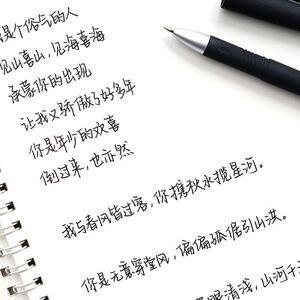 是个俗气的人
见山喜山，见海喜海
承蒙你的出现
让我又骄傲了好多年
你是年少的欢喜
倒过来，也亦然
我与春风皆过客，你携秋水揽星河。
你是无意穿堂风，偏偏孤倨引山洪。
眼清浅，山河